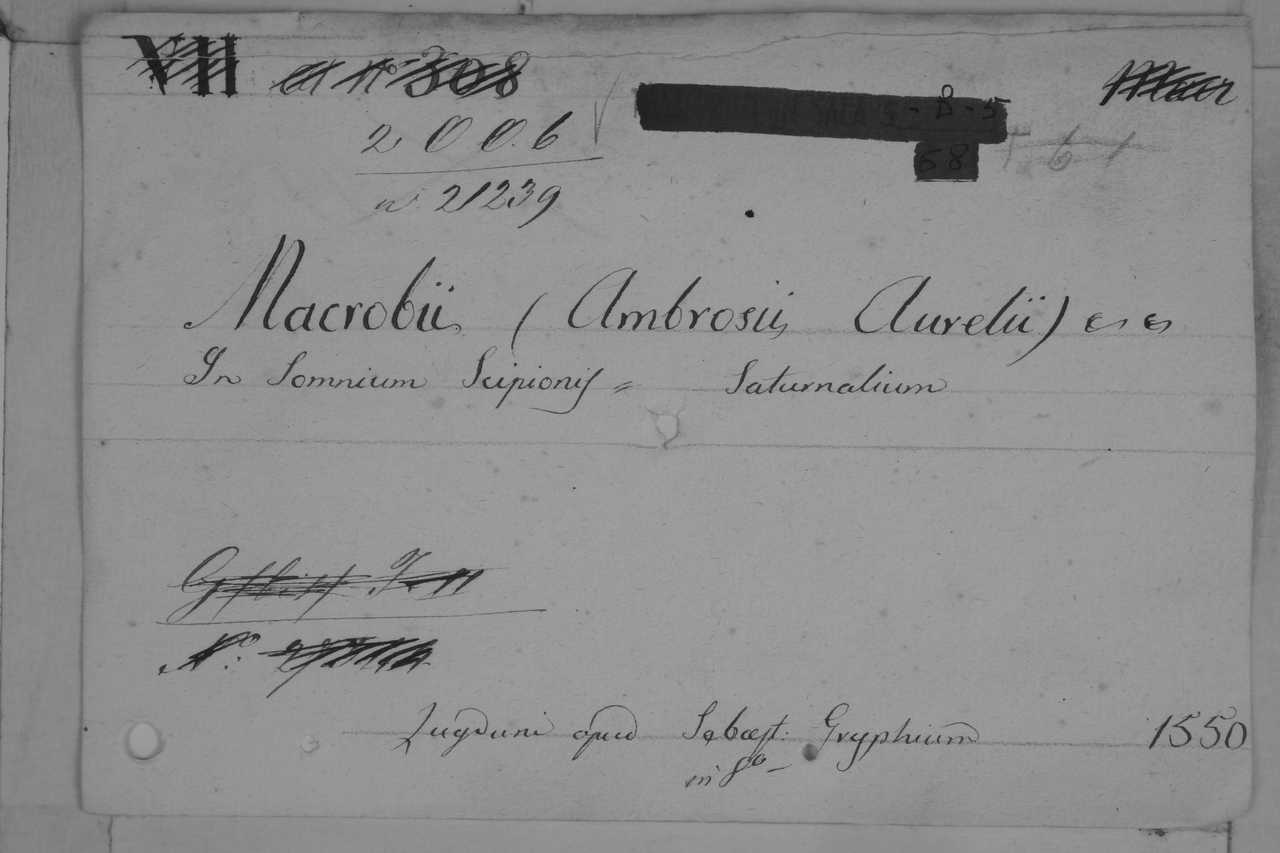 VII
308
2006
n. 21239
- B - 5
58
Macrobii, (Ambrosii, Aurelii)
In Somnium Scipionis = Saturnalium
Nº:
Lugduni apud Sebast: Gryphium 1550
in 8º -